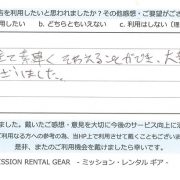 を利用したいと思われましたか?その他感想・ご要望がござ
利用したい b. どちらともいえない c. 利用はしない(理
て素早く そろえることができ、大
ざいました。
ました。戴いたご感想・意見を大切に今後のサービス向上に活
ご利用なる方への参考の為、当HP上で利用させて戴くこともござい
是非、またの機会を戴けましたら幸いです。
MISSION RENTAL GEAR - ミッション・レンタル ギア -